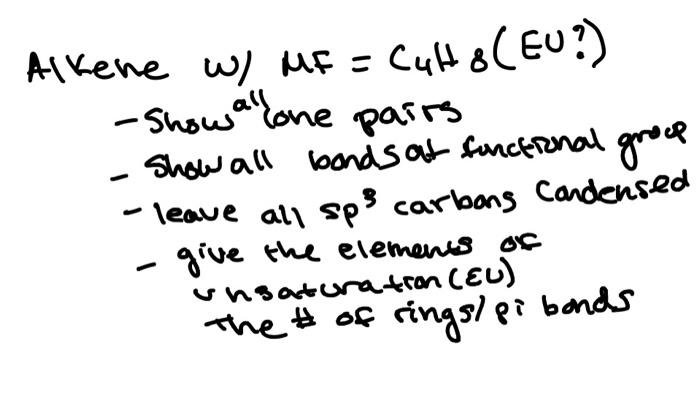 Alkene w/ MF = C4H8 (EU?)
- Show all lone pairs
- Show all bonds at functional group
- leave all sp³ carbons Condensed
- give the elements of
unsaturation (EU)
the # of rings/pi bonds